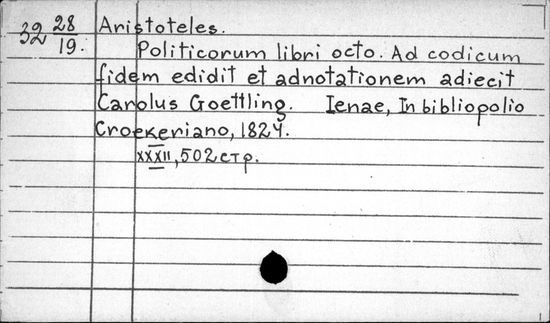 32 28/19. Aristoteles.
Politicorum libri octo. Ad codicum
fidem edidit et adnotationem adiecit
Carolus Goettling. Ienae, In bibliopolio
Croekeriano, 1824.
XXXII, 502 стр.